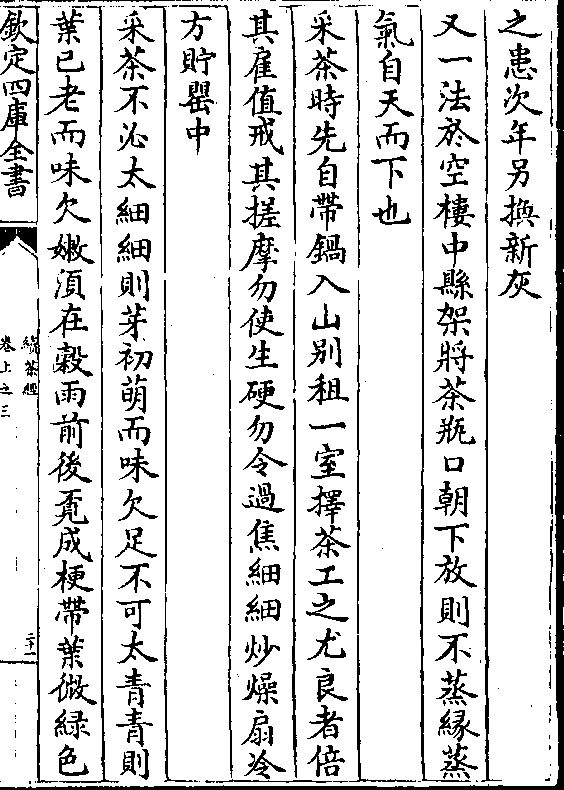 之患次年另換新灰
又一法於空樓中縣架將茶瓶口朝下放則不蒸縁蒸
氣自天而下也
采茶時先自帶鍋入山别租一室擇茶工之尤良者倍
其雇值戒其搓摩勿使生硬勿令過焦細細炒燥扇冷
方貯罌中
采茶不必太細細則芽初萌而味欠足不可太青青則
葉已老而味欠嫩湏在穀雨前後覓成梗帶葉微緑色
欽定四庫全書
續茶經
卷上之三
二十一